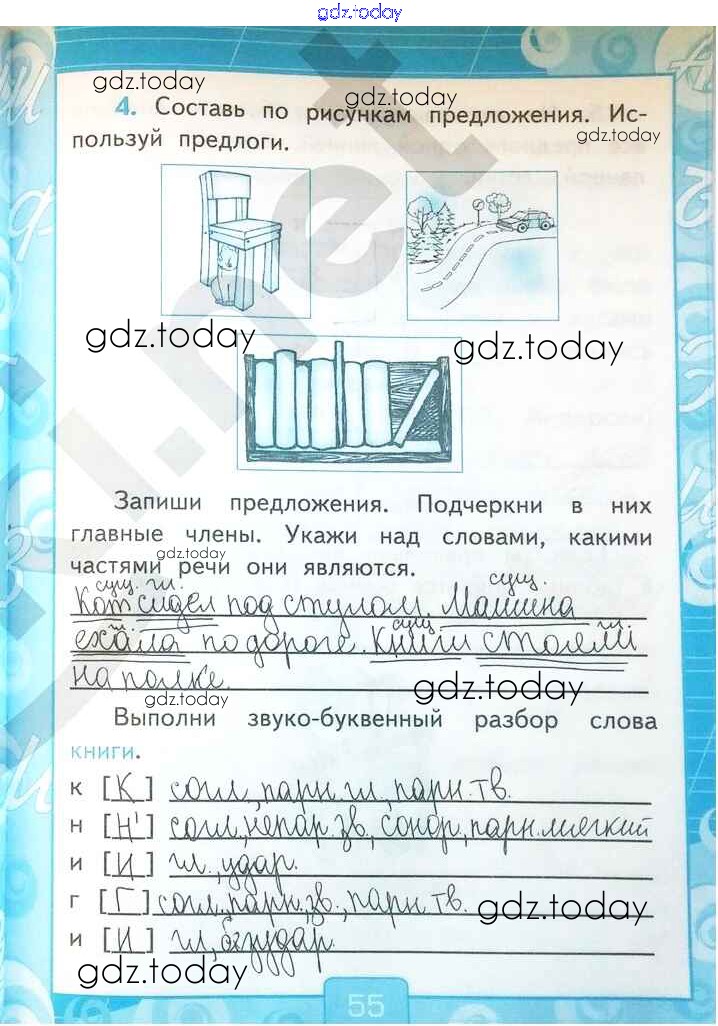 gdz.today
gdz.today
gdz.today
4. Составь по рисункам предложения. Ис-
gdz.today
пользуй предлоги.
gdz.today
gdz.today
Запиши предложения. Подчеркни в них
главные члены. Укажи над словами, какими
gdz.today
частями речи они являются.
сущ. гл. сущ.
Кот сидел под стулом. Машина
гл. сущ. гл.
ехала по дороге. Книги стояли
на полке.
gdz.today
Выполни звуко-буквенный разбор слова
книги.
к [К] согл, парн. гл, парн. тв.
н [Н'] согл, непар. зв, сонор, парн. мягкий
и [И] гл., удар.
г [Г] согл, парн, зв., парн. тв.
gdz.today
и [И] гл, безудар.
gdz.today
55